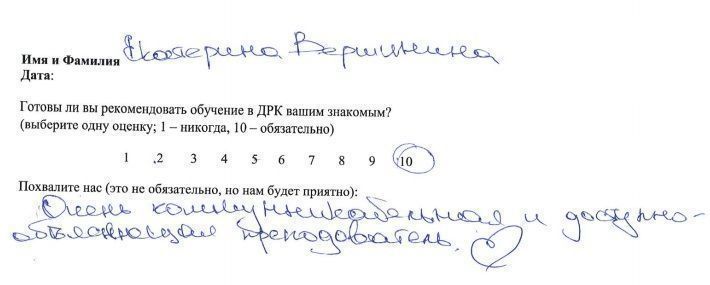 Имя и Фамилия Екатерина Вершинина
Дата:
Готовы ли вы рекомендовать обучение в ДРК вашим знакомым?
(выберите одну оценку; 1 – никогда, 10 – обязательно)
1 2 3 4 5 6 7 8 9 10
Похвалите нас (это не обязательно, но нам будет приятно):
Очень коммуникабельная и доступно-
объясняющая преподователь.